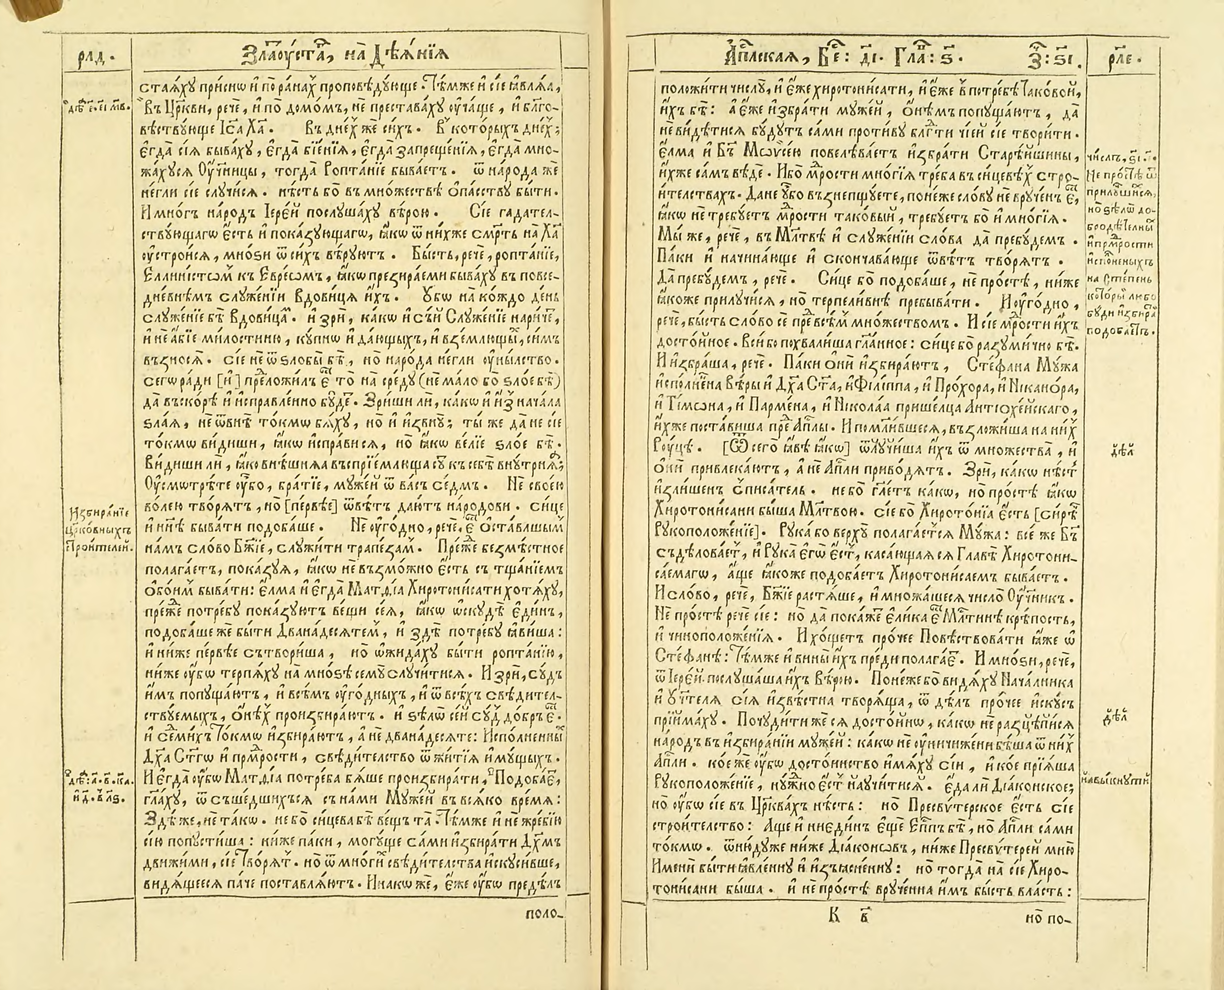 рлд.
Злⷶоу́стаⷢ҇, на̀ Дѣѧ́нїѧ
дѣⷮ: є҃. и҃ мв.
стаѧ́хꙋ присню̀ и҆ по̀ ра́нахъ проповѣ́дꙋюще. Тѣ́мже и҆ сїѐ ꙗ҆влѧ́ѧ,
въ Цр҃кви, рече́, и҆ по̀ домо́мъ, не преставахꙋ ᲂу҆ча́ще, и҆ благо-
вѣствꙋюще І҆са Ха҃. Въ дне́хъ же си́хъ. В̾ кото́рыхъ дне́хъ;
є҆гда̀ сїѧ̀ быва́хꙋ, є҆гда̀ бїе́нїѧ, є҆гда̀ запреще́нїѧ, є҆гда̀ мно-
жахꙋсѧ Оу҆чн҃ицы, тогда̀ Ропта́нїе быва́етъ. ѿ наро́да же
не́гли сїѐ слꙋчи́сѧ. нѣ́сть бо̀ въ мно́жествѣ ѻ҆па́сствꙋ бы́ти.
И҆ мно́гъ наро́дъ І҆ере́й послꙋ́шахꙋ вѣ́рою. Сїѐ гада́тел-
ствꙋющагѡ є҆́сть и҆ показꙋ́ющагѡ, ꙗ҆́кѡ ѿ ни́хже см҃рть на̀ Ха҃
ᲂу҆стро́исѧ, мно́ѕи ѿ си́хъ вѣ́рꙋютъ. Бы́сть, рече, ропта́нїе,
Е҆ллини́стѡмъ къ Є҆вре́ѡмъ, ꙗ҆́кѡ презира́еми быва́хꙋ въ повсе-
дне́внѣмъ слꙋже́нїи Вдови́цѧ и҆́хъ. Оу҆́бѡ на̀ ко́ждо де́нь
слꙋже́нїе бѣ̀ Вдови́цаⷨ. и҆ зри́, ка́кѡ и҆ съ́й Слꙋже́нїе нарицаⷮ,
и҆ не а҆́бїе ми́лостыню, кꙋ́пнѡ и҆ даю́щыхъ, и҆ вземлющиⷯ, си́мъ
възносѧ. сїѐ нѐ ѿ ѕло́бы бѣ̀, но̀ наро́да не́гли ᲂу҆ны́лство.
сегѡ̀ ра́ди [и] прⷣеложи́лъ єⷭ҇ то̀ на̀ средꙋ̀ (нѐ ма́ло бо̀ ѕло̀е бѣ̀)
да̀ въско́рѣ и҆ и҆спра́вленно бꙋ́деⷮ. Зри́ши лѝ, ка́кѡ и҆ и҆з̾ нача́ла
ѕла́ѧ, нѐ ѿвнѣ̀ то́кмѡ бѧ́хꙋ, но̀ и҆ и҆звнꙋ̀; ты́ же да̀ нѐ сїѐ
то́кмѡ ви́диши, ꙗ҆́кѡ и҆спра́висѧ, но̀ ꙗ҆́кѡ ве́лїе ѕло́е бѣ̀.
Ви́диши лѝ, ꙗ҆́ко внѣ́шнѧѧ въспрїе́млюща сꙋⷮ къ себѣ̀ внꙋ́трнѧѧ;
Оу҆смотри́те ᲂу҆́бо, бра́тїе, мꙋже́й ѿ ва́съ се́дмъ. Нѐ свое́ю
во́лею творѧ́тъ, но̀ [пе́рвѣе] ѿвѣ́тъ даю́тъ наро́дови. си́це
и҆ нн҃ѣ быва́ти подоба́ше. Нѐ ᲂу҆го́дно, рече́, єⷭ҇ ѡ҆ста́вльшымъ
на́мъ сло́во Бж҃їе, слꙋжи́ти трапе́замъ. Пре́жⷣе безмѣ́стное
полага́етъ, показꙋ́ѧ, ꙗ҆́кѡ невъзмо́жно є҆́сть съ тща́нїемъ
ѻ҆бои́мъ быва́ти: є҆лма̀ и҆ є҆гда̀ Матѳі́а Хиротониса́ти хотѧ́хꙋ,
пре́жⷣе потре́бꙋ показꙋ́ютъ ве́щи сеѧ̀, ꙗ҆́кѡ ѡ҆скꙋдѣ̀ є҆ди́нъ,
подоба́ше же бы́ти Двана́десѧтемъ, и҆ здѣ̀ потре́бꙋ ꙗ҆ви́ша:
и҆ ни́же пе́рвѣе сътвори́ша, но̀ ѡ҆жида́хꙋ бы́ти ропта́нїю,
ни́же ᲂу҆́бѡ терпѧ́хꙋ на̀ мно́ѕѣ семꙋ̀ слꙋчи́тисѧ. И҆ зри́, сꙋ́дъ
и҆̀мъ попꙋща́ютъ, и҆ всѣ́мъ ᲂу҆го́дныхъ, и҆ ѿ всѣ́хъ свѣдѣ́тел-
ствꙋемыхъ, ѻ҆нѣ́хъ произбира́ютъ. и҆ ѕѣлѡ̀ се́й сꙋ́дъ до́бръ єⷭ҇.
и҆ седми́хъ то́кмѡ и҆збира́ютъ, а҆ нѐ двана́десѧте: И҆спо́лненныⷯ
Дх҃а Ст҃гѡ и҆ прⷨрости, свѣдѣ́телство ѿ житїѧ̀ и҆мꙋ́щыхъ.
И҆ є҆гда̀ ᲂу҆́бѡ Матѳі́а потре́ба бѧ́ше произбира́ти, Подоба́еⷮ,
гл҃ахꙋ, ѿ съше́дшихъсѧ съ на́ми Мꙋже́й въ всѧ́ко вре́мѧ:
Здѣ́ же, нѐ та́кѡ. нѐ бо̀ сицева̀ бѣ̀ ве́щъ та̀. Тѣ́мже и҆ нѐ жре́бїю
сїю̀ попꙋсти́ша: ни́же па́ки, могꙋ́ще са́ми и҆збира́ти Дх҃мъ
дви́жими, сїѐ творѧ́тъ. но̀ ѿ мно́ги свѣдѣ́телства и҆скꙋси́вше,
видѧ́щеесѧ па́че поставлѧ́ютъ. И҆на́кѡ же, є҆́же ᲂу҆́бѡ предѣ́лъ
И҆збира́нїе
Цр҃ко́вныхъ
Строи́телей.
дѣⷮ: а҃. в҃. ка.
и҆ д҃. в҃лѕ.
поло-
А҆пⷭ҇лская, Бесⷣ: д҃і. Глаⷡ҇: ѕ҃.
Зⷱ: ѕ҃і.
рле.
положи́ти числꙋ̀, и҆ є҆́же хиротониса́ти, и҆ є҆́же в̾ потре́бѣ тако́вой,
и҆́хъ бѣ̀: а҆ є҆́же и҆збра́ти мꙋже́й, ѻ҆нѣ́мъ попꙋща́ютъ, да̀
нѐ ви́дѣтисѧ бꙋ́дꙋтъ са́ми проти́вꙋ бл҃гти чїе́й сїѐ твори́ти.
є҆лма̀ и҆ Бг҃ъ Мѡѷсе́ю повелѣва́етъ и҆збра́ти Старѣ́йшины,
и҆́хже са́мъ вѣ́де. И҆́бо мⷣрости мно́гїѧ тре́ба въ сицевѣ́хъ стро-
и́телствахъ. Дане ᲂу҆́бо възнепщꙋ́ете, поне́же сло́вꙋ нѐ врꙋче́нъ єⷭ҇,
ꙗ҆́кѡ нѐ тре́бꙋетъ мⷣрости тако́вый, тре́бꙋетъ бо̀ и҆ мно́гїѧ.
Мы́ же, рече́, въ Мл҃твѣ и҆ слꙋже́нїи сло́ва да̀ пребꙋ́демъ.
Па́ки и҆ начина́юще и҆ сконча́вающе ѿвѣ́тъ творѧ́тъ.
Да̀ пребꙋ́демъ, рече́. Си́це бо̀ подоба́ше, нѐ про́стѣ, ни́же
ꙗ҆́коже прилꙋчи́сѧ, но̀ терпели́внѣ пребыва́ти. И҆ ᲂу҆го́дно,
рече́, бы́сть сло́во сѐ преⷣ всѣ́мъ мно́жествомъ. И҆ сїѐ мⷣрости и҆́хъ
досто́йное. Вси́ бо похвали́ша гл҃анное: си́це бо̀ разꙋми́чно бѣ̀.
И҆ и҆збра́ша, рече́. Па́ки ѻ҆нѝ и҆збира́ютъ, Стефа́на Мꙋ́жа
и҆спо́лнена Вѣ́ры и҆ Дх҃а Ст҃а, и҆ Фїли́ппа, и҆ Про́хора, и҆ Нїкано́ра,
и҆ Ті́мѡна, и҆ Парме́на, и҆ Нїкола́а прише́лца А҆нтїохе́йскаго,
и҆́хже поста́виша преⷣ А҆пⷭ҇лы. И҆ помли́вшесѧ, възложи́ша на̀ ни́хъ
Рꙋ́цѣ. [Ѿ сегѡ̀ ꙗ҆́вѣ ꙗ҆́кѡ] ѿлꙋчи́ша и҆́хъ ѿ мно́жества, и҆
ѻ҆нѝ привлека́ютъ, а҆ нѐ А҆пⷭ҇ли приво́дѧтъ. Зри́, ка́кѡ нѣ́сть
и҆зли́шенъ Списа́тель. нѐ бо̀ гл҃етъ ка́кѡ, но̀ про́стѣ ꙗ҆́кѡ
Хиротони́сани бы́ша Мл҃твою. сїѐ бо̀ Хирото́нїа є҆́сть [си́рѣⷱ
Рꙋкоположе́нїе]. Рꙋка̀ бо верхꙋ̀ полага́етсѧ Мꙋ́жа: все́ же Бг҃ъ
съдѣ́ловаетъ, и҆ Рꙋка̀ є҆гѡ̀ є҆́сть, каса́ющаѧсѧ Главѣ̀ Хиротони-
са́емагѡ, а҆́ще ꙗ҆́коже подоба́етъ Хиротониса́емъ быва́етъ.
И҆ сло́во, рече́, Бж҃їе растѧ́ше, и҆ мно́жашесѧ число̀ Оу҆чн҃икъ.
Нѐ про́стѣ рече́ сїѐ: но̀ да̀ пока́жеⷮ є҆ли́ка єⷭ҇ Мл҃тынѣ кре́пость,
и҆ чиноположе́нїѧ. И҆ хо́щетъ про́чее Повѣ́ствовати ꙗ҆́же ѡ҆
Стефа́нѣ: Тѣ́мже и҆ вины̀ и҆́хъ преди полага́еⷮ. И҆ мно́ѕи, рече́,
ѿ І҆ере́й послꙋ́шаша и҆́хъ Вѣ́рою. Поне́же бо видѧ́хꙋ Нача́лника
и҆ Оу҆чт҃елѧ сїѧ̀ и҆звѣ́стна творѧ́ща, ѿ дѣ́лъ про́чее и҆скꙋ́съ
прїима́хꙋ. Почꙋди́ти же сѧ досто́йнѡ, ка́кѡ нѐ разцѣпи́сѧ
наро́дъ въ и҆збира́нїи мꙋже́й: ка́кѡ нѐ ᲂу҆ничиже́ни бѣ́ша ѿ ни́хъ
А҆пⷭ҇ли. ко́е же ᲂу҆́бѡ досто́инство и҆мѧ́хꙋ сїѝ, и҆ ко́е прїѧ́ша
Рꙋкоположе́нїе, нꙋ́жно є҆́сть наꙋчи́тисѧ. є҆да́ли Дїа́конское;
но̀ ᲂу҆́бѡ сїѐ въ Цр҃квахъ нѣ́сть: но̀ Пресвѵ́терское є҆́сть сїѐ
строи́телство: А҆́ще и҆ ниеди́нъ є҆щѐ Е҆пⷭ҇пъ бѣ̀, но̀ А҆пⷭ҇ли са́ми
то́кмѡ. ѿню́дꙋже ни́же Дїа́конѡвъ, ни́же Пресвѵ́терей мню̀
И҆мени бы́ти ꙗ҆вле́ннꙋ и҆ и҆зъꙗсне́ннꙋ: но̀ тогда̀ на̀ сїѐ Хиро-
тони́сани бы́ша. и҆ нѐ про́стѣ врꙋче́нна и҆́мъ бы́сть вла́сть:
Нѐ про́стѣ ѿ
но̀ ѕѣлѡ̀ до-
бродѣ́телны
и҆ прⷨрости
и҆спо́лненыхъ
на̀ Сте́пень
кото́ры ли́бо
бꙋ́ди и҆збира́
подоба́етъ.
дѣѧ
дѣѧ
навы́кнꙋти
К в҃
но̀ по-